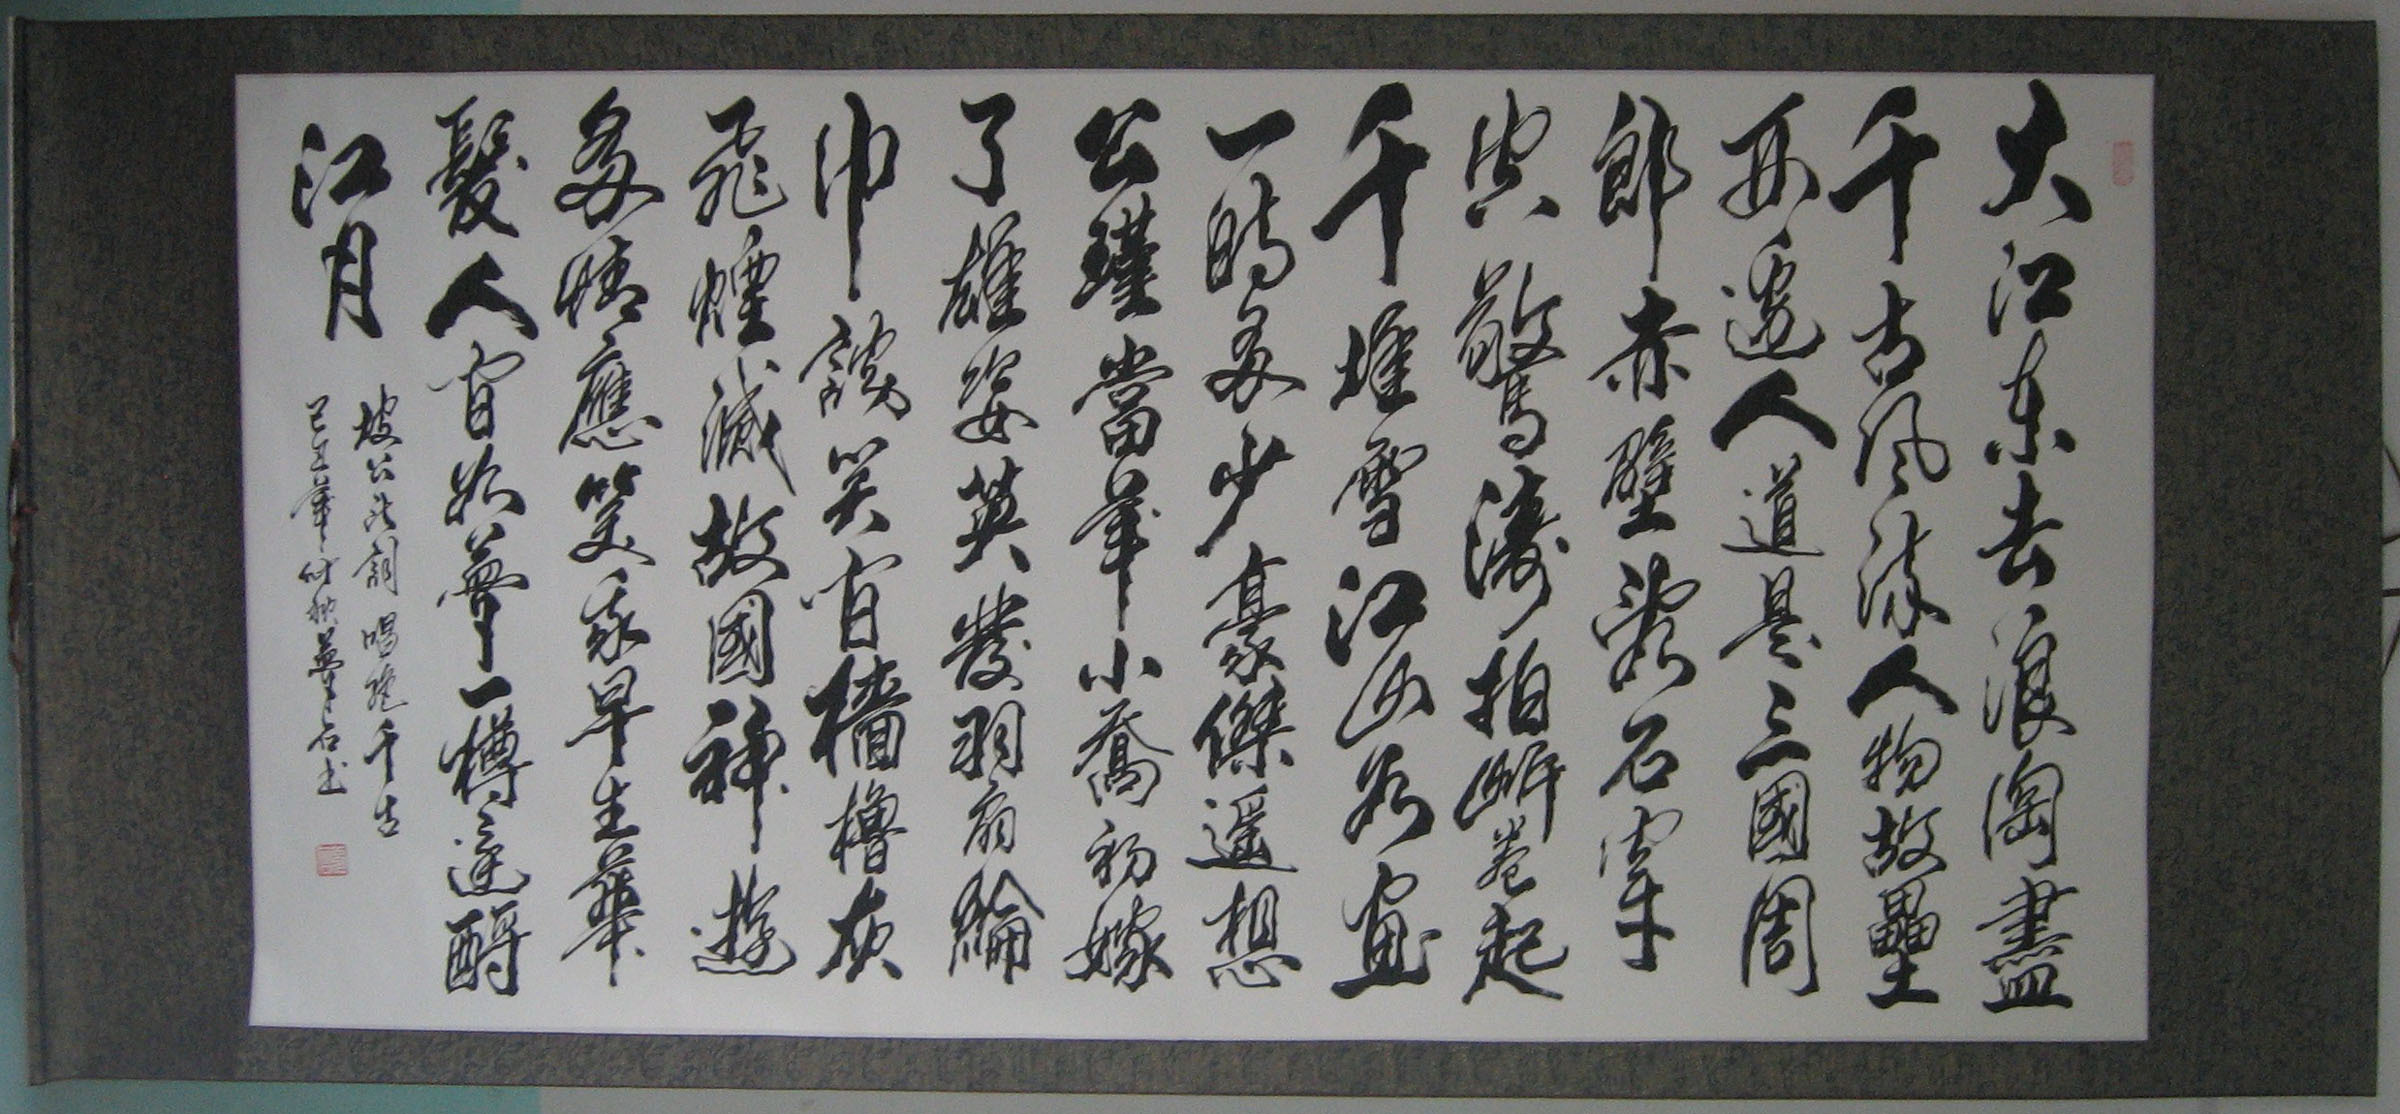 大江東去浪淘盡
千古風流人物故壘
西邊人道是三國周
郎赤壁亂石穿
空驚濤拍岸卷起
千堆雪江山如畫
一時多少豪傑遥想
公瑾當年小喬初嫁
了雄姿英發羽扇綸
巾談笑間檣櫓灰
飛煙滅故國神遊
多情應笑我早生華
髮人間如夢一樽還酹
江月
坡公此詞唱絶千古
己丑年竹秋夢石書